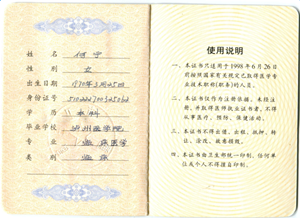 姓 名 何宇
性 别 女
出生日期
身份证号
学 历 本科
毕业学校 泸州医学院
专 业 临床医学
类 别 临床
使用说明
一、本证书只适用于1998年6月26日
前按照国家有关规定已取得医学专
业技术职称(职务)的人员。
二、本证书仅作为注册依据。未经注
册,并取得医师执业证书者,不得
从事医疗、预防、保健活动。
三、本证书不得出借、出租、抵押、转
让、涂改、故意损毁。
四、本证书由卫生部统一印制,任何单
位或个人不得擅自印制。